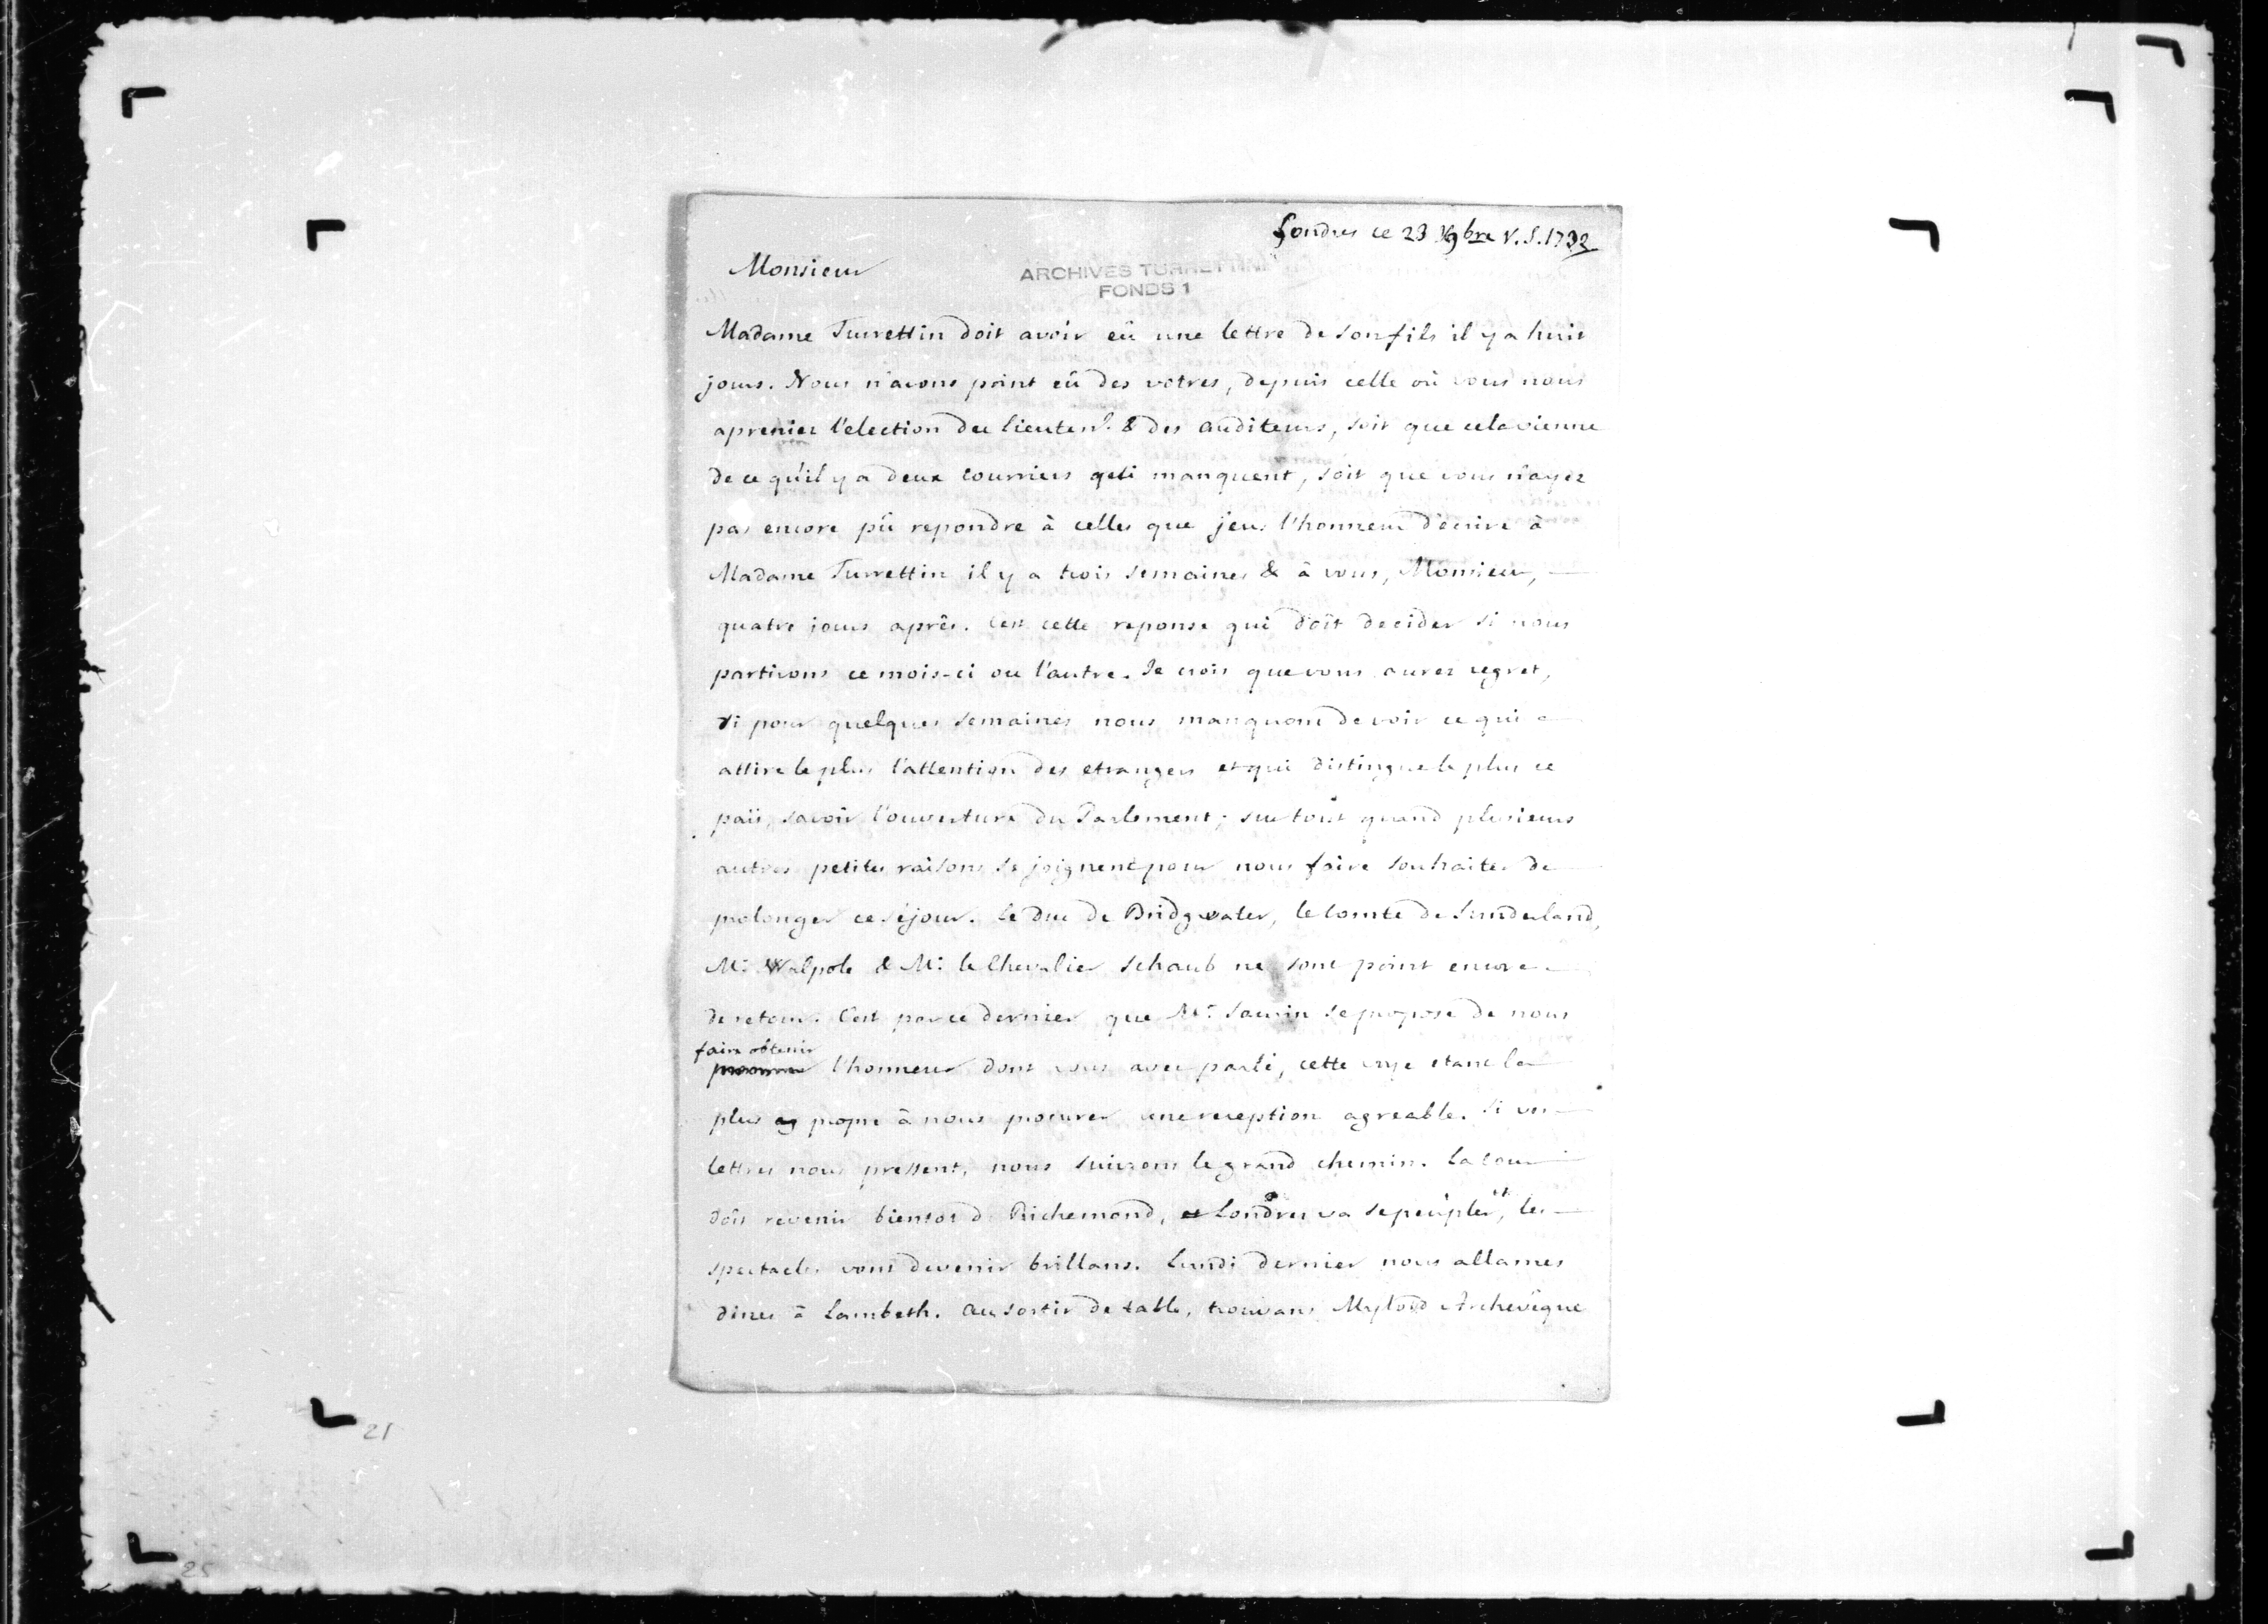 Londres ce 23 9bre V.S. 1732
Monsieur
ARCHIVES TURRETTINI
FONDS 1
Madame Turrettin doit avoir eû une lettre de son fils il y a huit
jours. Nous n'avons point eû des votres, depuis celle où vous nous
apreniez l'election du lieuten.t & des Auditeurs, soit que cela vienne
de ce qu'il y a deux courriers qui manquent, soit que vous n'ayez
pas encore pû repondre à celles que j'eus l'honneur d'écrire à
Madame Turrettin il y a trois semaines & à vous, Monsieur,
quatre jours après. C'est cette reponse qui doît decider si nous
partirons ce mois-ci ou l'autre. Je crois que vous aurez regret,
si pour quelques semaines nous manquons de voir ce qui
attire le plus l'attention des etrangers et qui distingue le plus ce
païs, savoir l'ouverture du Parlement; sur tout quand plusieurs
autres petites raisons se joignent pour nous faire souhaiter de
prolonger ce séjour. Le Duc de Bridgwater, le Comte de Sunderland,
Mr. Walpole & Mr. le Chevalier Schaub ne sont point encore
de retour. C'est par ce dernier que Mr. Saurin se propose de nous
faire obtenir
procurer l'honneur dont vous avez parlé, cette voye etant la
plus ag propre à nous procurer une reception agreable. Si vos
lettres nous pressent, nous suivrons le grand chemin. La cour
doit revenir bientot de Richemond, et Londres va se peupler, et les
spectacles vont devenir brillans. Lundi dernier nous allames
diner à Lambeth. Au sortir de table, trouvans Mylord Archevêque
21
25